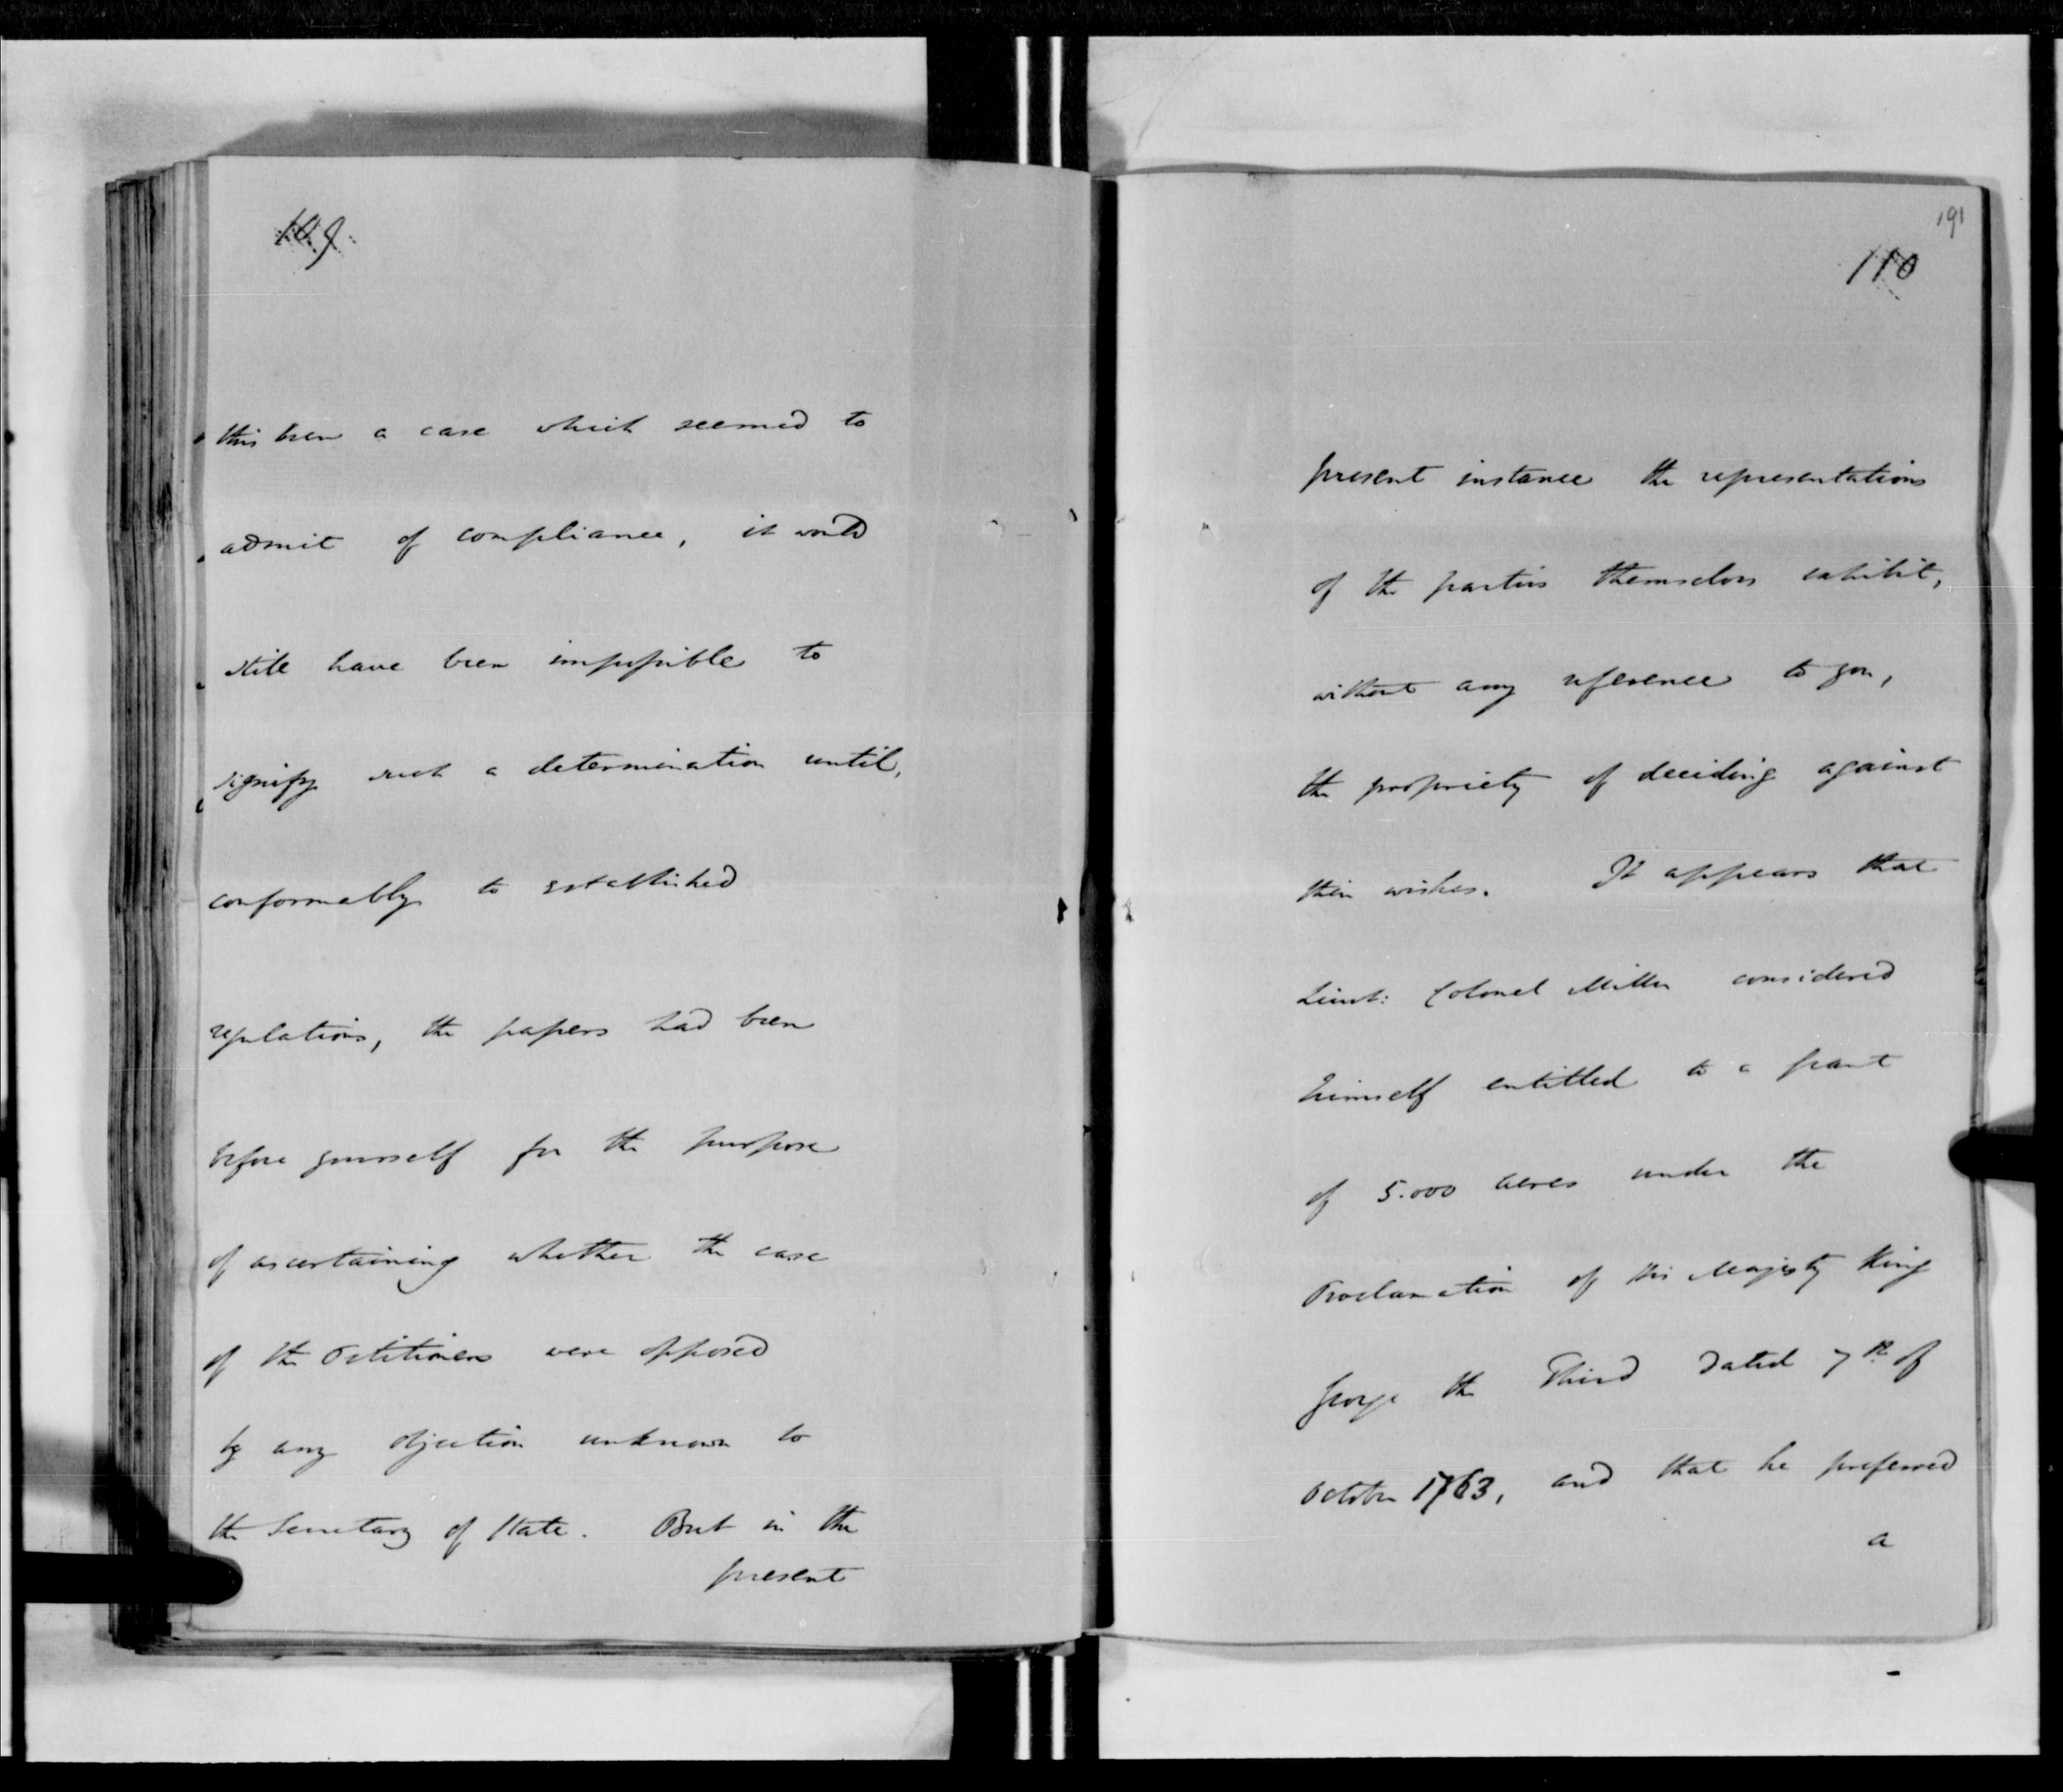 109
this been a case which seemed to
admit of compliance, it would
still have been impossible to
signify such a determination until,
conformably to established
regulations, the papers had been
before yourself for the purpose
of ascertaining whether the case
of the Petitioners were opposed
by any objection unknown to
the Secretary of State. But in the
present
191
110
present instance the representations
of the parties themselves exhibit,
without any reference to you,
the propriety of deciding against
their wishes. It appears that
Lieut: Colonel Miller considered
himself entitled to a grant
of 5.000 acres under the
Proclamation of His Majesty King
George the Third dated 7th of
October 1763, and that he preferred
a